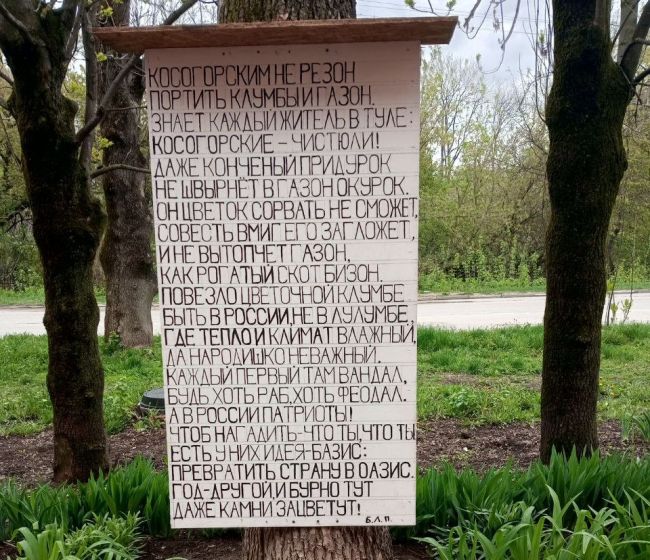 КОСОГОРСКИМ НЕ РЕЗОН
ПОРТИТЬ КЛУМБЫ И ГАЗОН.
ЗНАЕТ КАЖДЫЙ ЖИТЕЛЬ В ТУЛЕ:
КОСОГОРСКИЕ – ЧИСТЮЛИ!
ДАЖЕ КОНЧЕНЫЙ ПРИДУРОК
НЕ ШВЫРНЁТ В ГАЗОН ОКУРОК.
ОН ЦВЕТОК СОРВАТЬ НЕ СМОЖЕТ,
СОВЕСТЬ ВМИГ ЕГО ЗАГЛОЖЕТ,
И НЕ ВЫТОПЧЕТ ГАЗОН,
КАК РОГАТЫЙ СКОТ БИЗОН.
ПОВЕЗЛО ЦВЕТОЧНОЙ КЛУМБЕ
БЫТЬ В РОССИИ, НЕ В ЛУЛУМБЕ.
ГДЕ ТЕПЛО И КЛИМАТ ВЛАЖНЫЙ,
ДА НАРОДИШКО НЕВАЖНЫЙ.
КАЖДЫЙ ПЕРВЫЙ ТАМ ВАНДАЛ,
БУДЬ ХОТЬ РАБ, ХОТЬ ФЕОДАЛ.
А В РОССИИ ПАТРИОТЫ!
ЧТОБ НАГАДИТЬ – ЧТО ТЫ, ЧТО ТЫ
ЕСТЬ У НИХ ИДЕЯ-БАЗИС:
ПРЕВРАТИТЬ СТРАНУ В ОАЗИС.
ГОД-ДРУГОЙ И БУРНО ТУТ
ДАЖЕ КАМНИ ЗАЦВЕТУТ!
Б.Л.П.